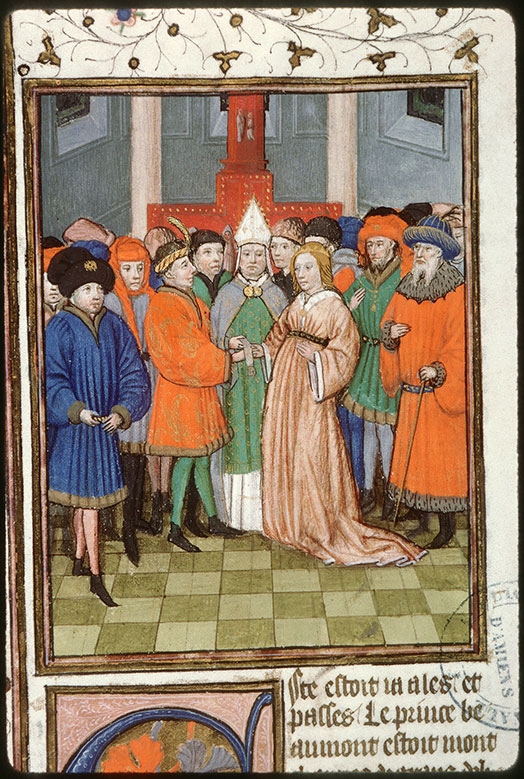 ste estoit ia ales et
passes. Le prince be
aumont estoit mont
D'AMIENS